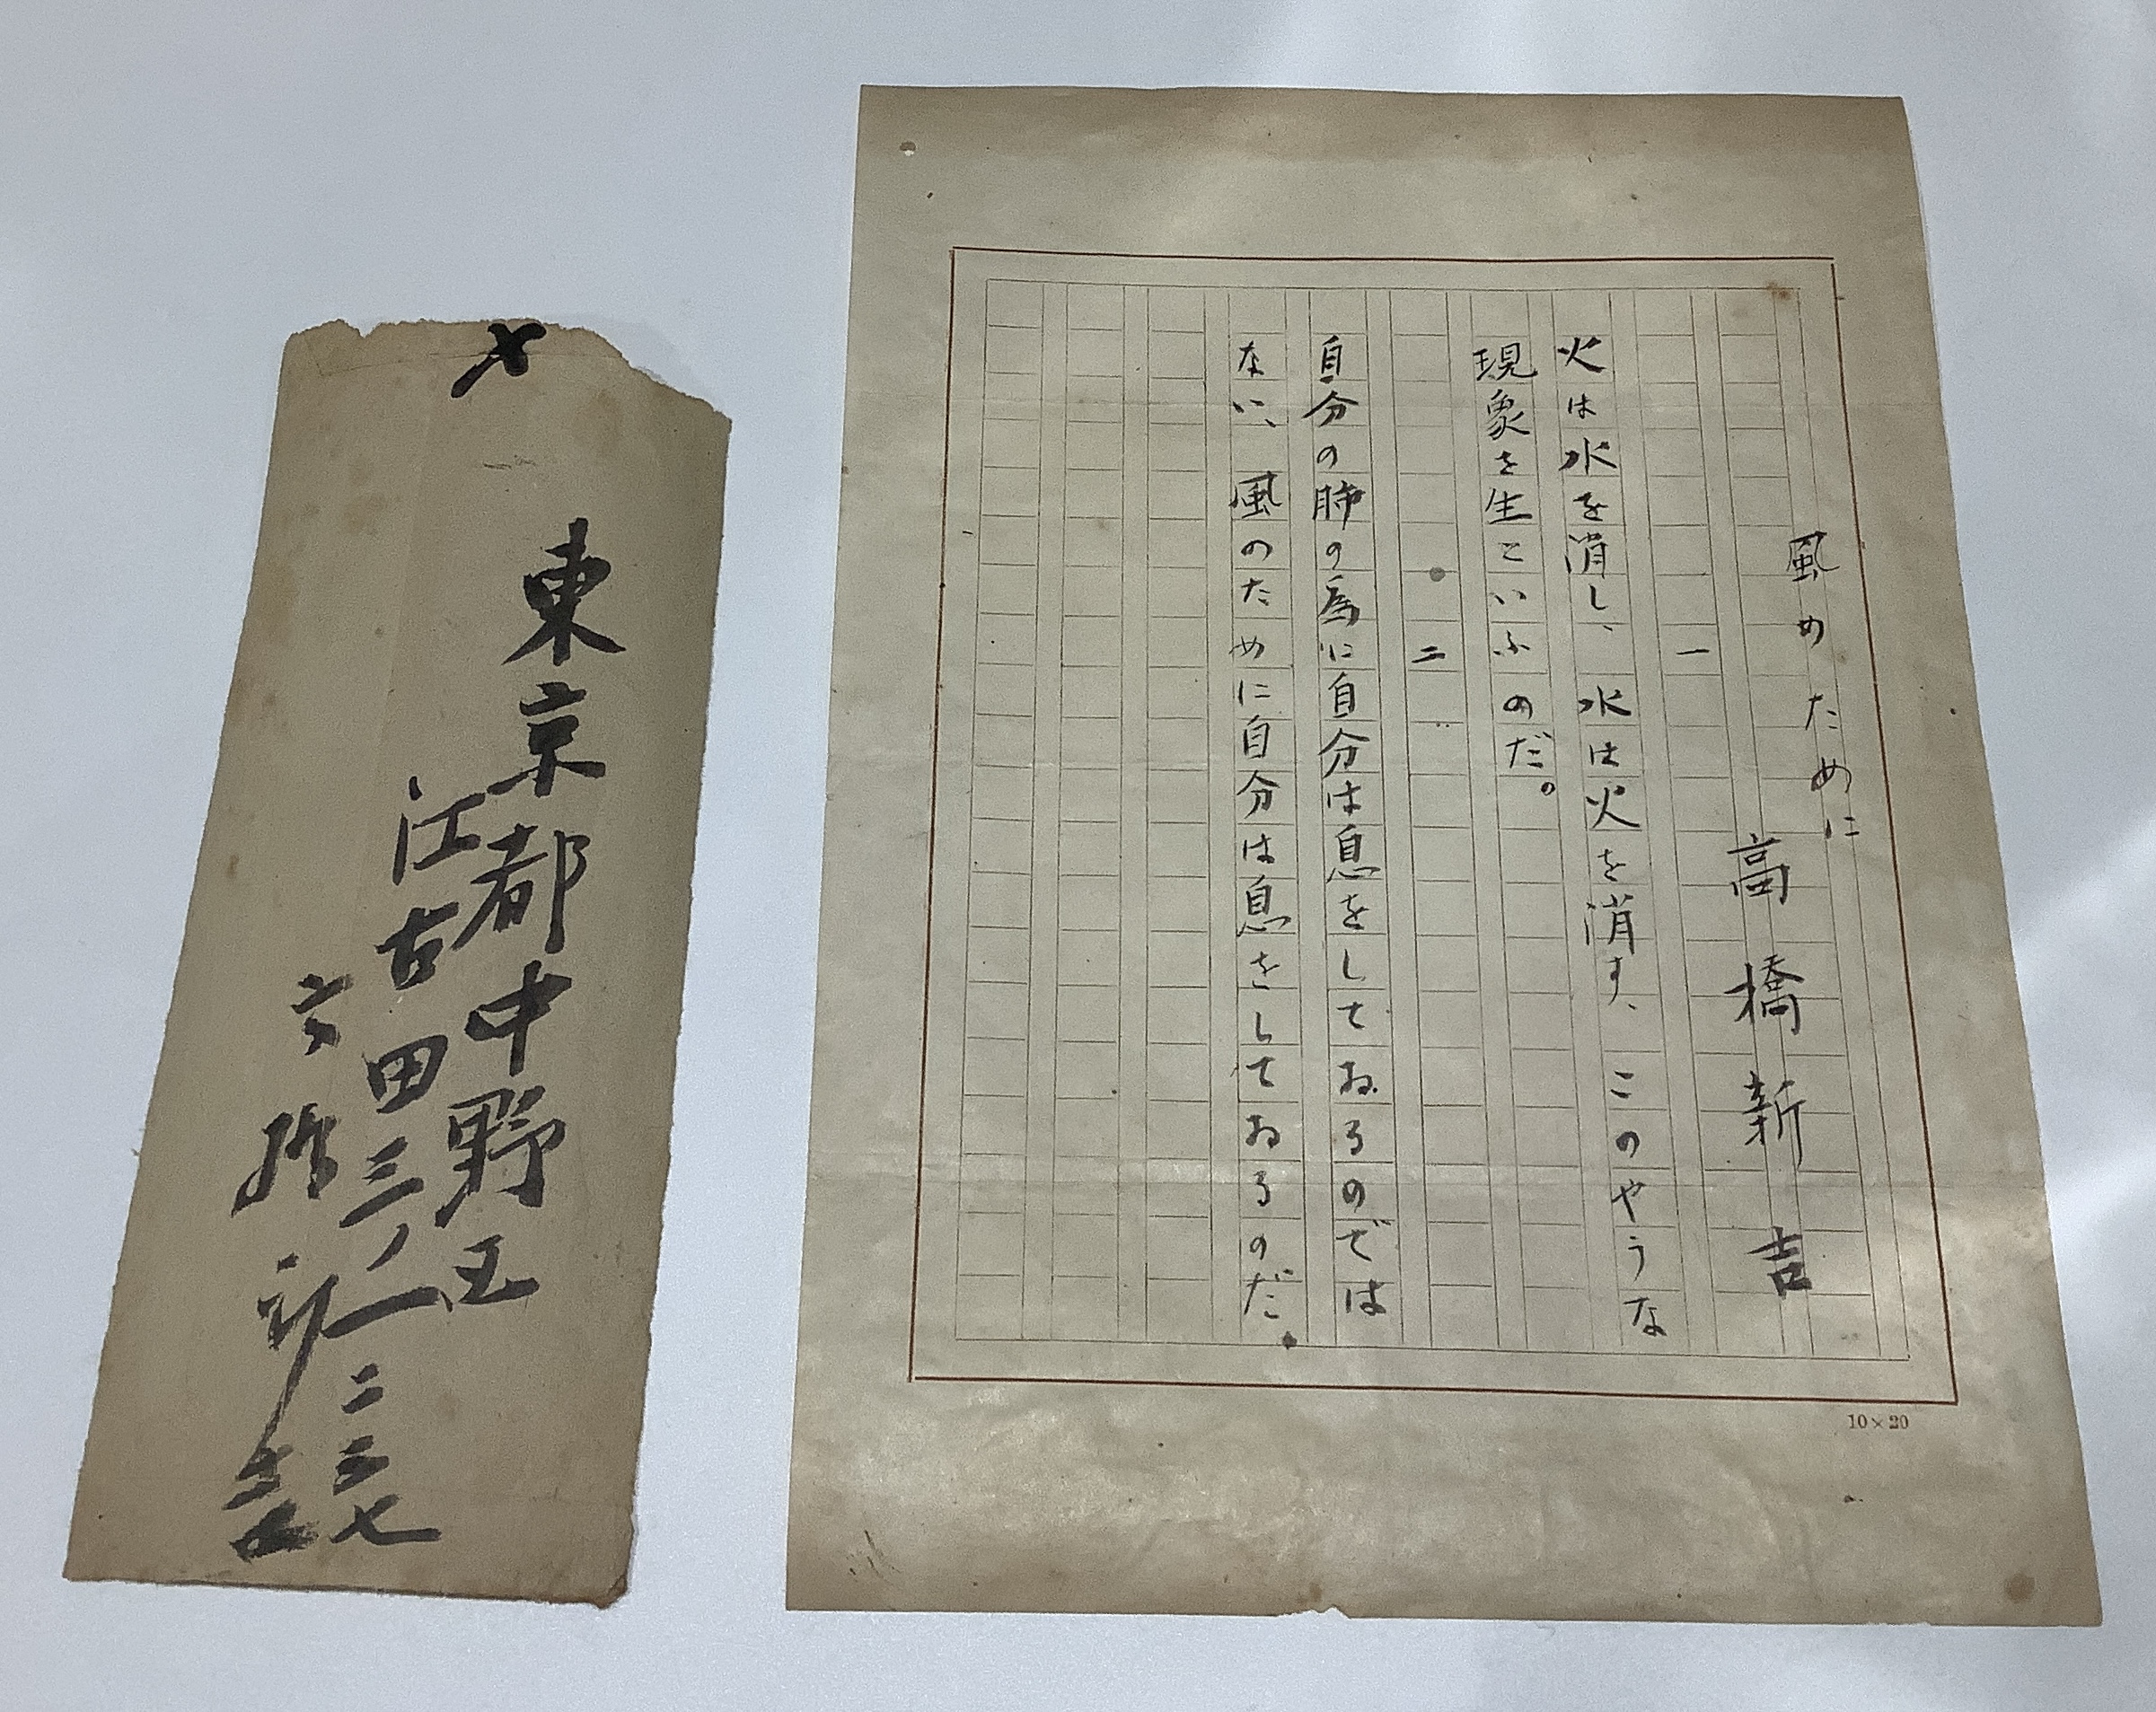 風のために
高橋新吉
一
火は水を消し、水は火を消す、このやうな
現象を生といふのだ。
二
自分の肺の為に自分は息をしておるのでは
ない、風のために自分は息をしておるのだ。
10×20
〆
東京都中野区
江古田三ノ一二三七
高橋新吉